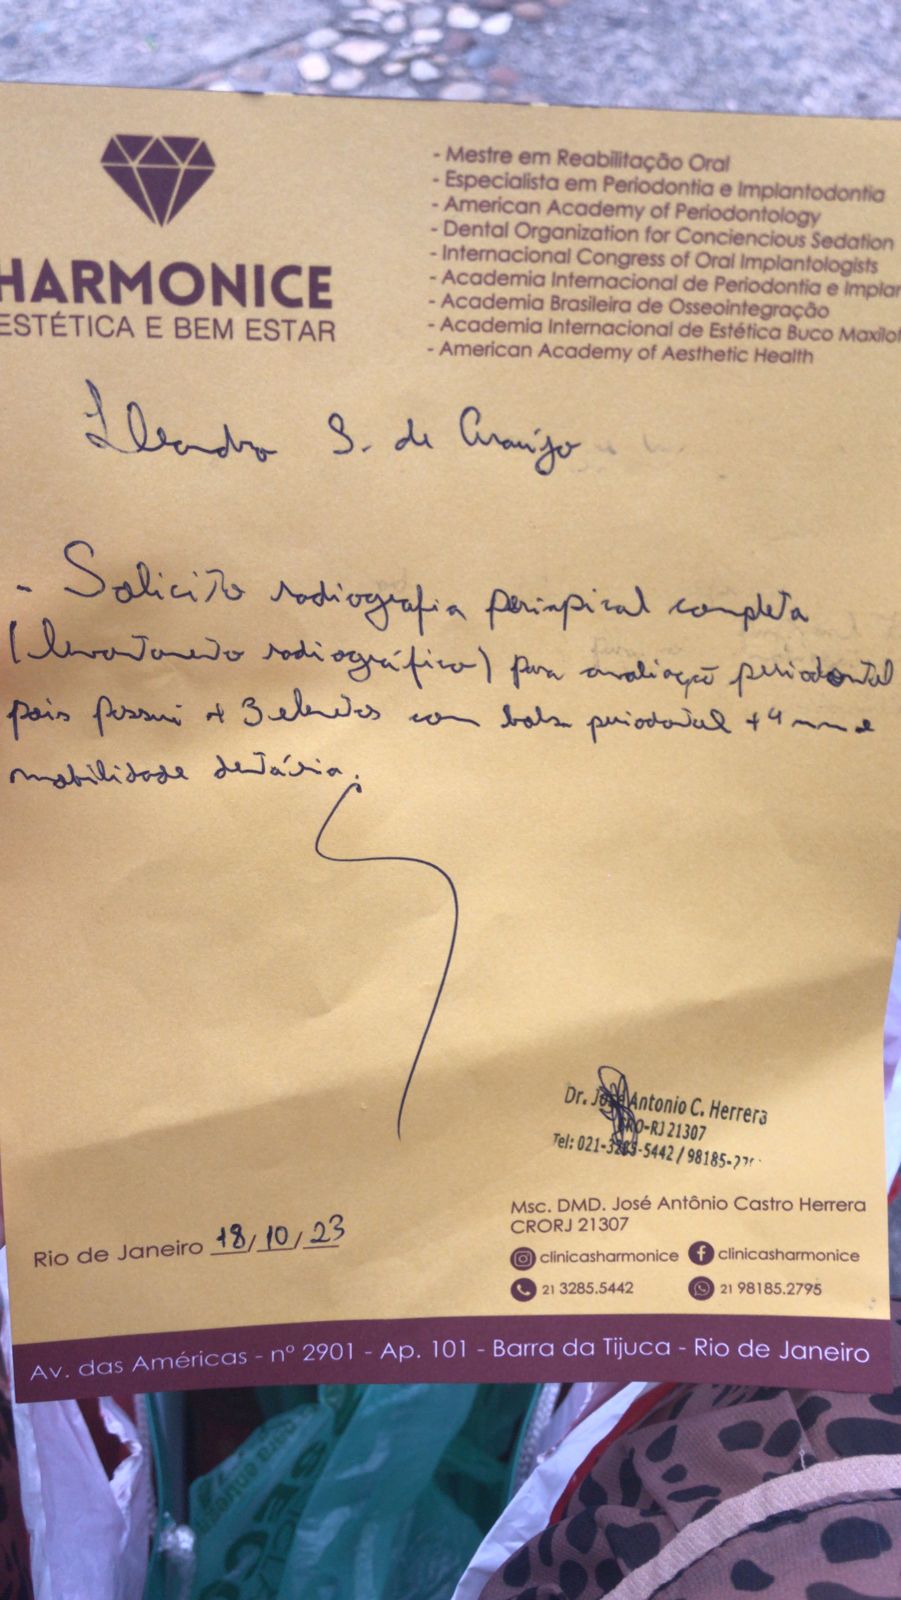 HARMONICE
ESTÉTICA E BEM ESTAR
- Mestre em Reabilitação Oral
- Especialista em Periodontia e Implantodontia
- American Academy of Periodontology
- Dental Organization for Conciencious Sedation
- Internacional Congress of Oral Implantologists
- Academia Internacional de Periodontia e Implan
- Academia Brasileira de Osseointegração
- Academia Internacional de Estética Buco Maxilof
- American Academy of Aesthetic Health
Lleandro S. de Araújo
- Solicito radiografia periapical completa
(levantamento radiográfico) para avaliação periodontal
pois possui + 3 elementos com bolsa periodontal +4 mm e
mobilidade dentária.
Dr. José Antonio C. Herrera
CRO-RJ 21307
Tel: 021-3285-5442 / 98185-27
Msc. DMD. José Antônio Castro Herrera
CRORJ 21307
Rio de Janeiro 18/10/23
clinicasharmonice clinicasharmonice
21 3285.5442 21 98185.2795
Av. das Américas - nº 2901 - Ap. 101 - Barra da Tijuca - Rio de Janeiro